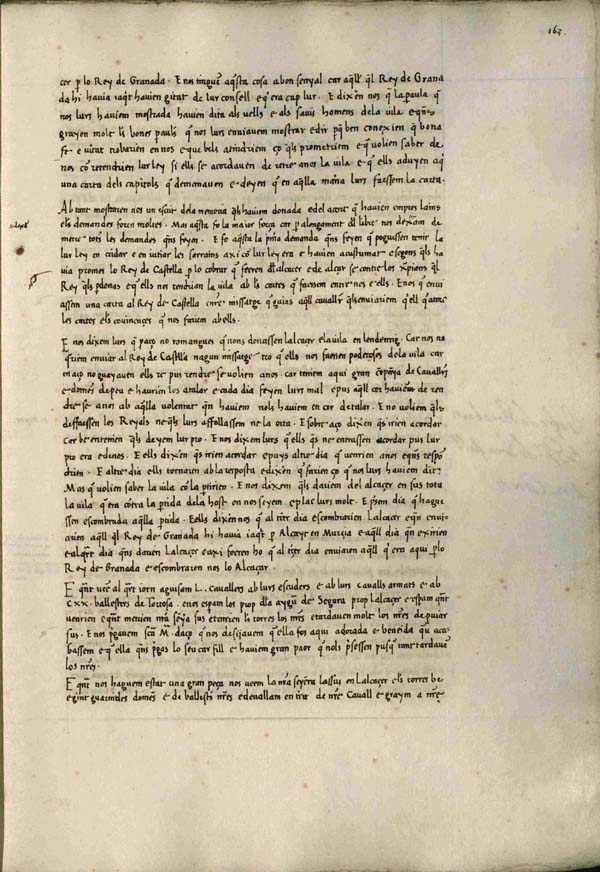 163
cer p lo Rey de Granada. E nos tinguem aqsta cosa a bon senyal car aqll ql Rey de Grana
da hi havia havien gitat de lur consell e era cap lur. E dixen nos q la paula q
nos lurs haviem mostrada havien dita als vells e als savis homens dela vila e qns
grayen molt les bones paules q nos lurs enviavem mostrar e dir pq ben conexien q bona
fe e vitat trobarien en nos e que bels atindriem ço qls prometriem e q volien saber de
nos co retendrien lur ley si ells se acordaven de retre anos la vila e q ells aduyen aq
una carta dels capitols q demanaven e deyen q en aqlla mana lurs faessem la carta.
Ab tant mostraren nos un escrit dela memoria qls haviem donada e del acort q havien empres lains
els demandes foren moltes. Mas aqsta fo la maior força cor p alongament del libre nos dexam de
metre totes les demandes qns feyen. E fo aqsta la pma demanda qns feyen q poguessen tenir la
lur ley en cridar e en iutiar les sarrains axi co lur ley era e havien acustumat e segons qls ha
via pmes lo Rey de Castella p lo cobrar q feeren del alcacer e de alçar se contra los xpians ql
Rey qls pdonas e q ells nos tendrian la vila ab les cartes q faessem entre nos e ells. E nos q envi
assem una carta al Rey de Castella missatge q guias aqll cavaller qls enviariem q ell
les cartes els covinençes q nos fariem ab ells.
E nos dixem lurs q p aço no romangues q nons donassen lalcacer e la vila en lendemig. Car nos no
qriem enviar al Rey de Castella negun missatge tro q ells nos faessen poderoses dela vila car
en aço no guayaven ells re pus rendre se volien anos. car teniem aqui gran copanya de Cavallers
e domes de peu e hauriem los atalar e cada dia feyen lurs mal e pus aqll cor havien de ren
dre se anos ab aqlla volentat qn haviem nols haviem en cor de talar. E no voliem qls
deffaessen los Reyals ne qls lurs affollassem ne la orta. E sobre aço dixen qs irien acordar
cor be entenien qls deyem lur pro. E nos dixem lurs q ells qs ne entrassen acordar pus lur
pro era e donos. E ells dixen qs irien acordar e puys altre dia q venrien anos e qns respo
drien. E altre dia ells tornaren ab la resposta e dixen q farien ço q nos lurs haviem dit.
Mas q volien saber la vila co la ptirien. E nos dixem qls dariem del alcacer en sus tota
la vila q era contra la ptida dela host en nos seyem e plac lurs molt. E psem dia q hague
ssen escombrada aqlla ptida. E ells dixen nos q al terç dia escombrarien lalcacer e qn envi
arien aqll ql Rey de Granada hi havia p Alcayt en Murcia e aqll dia qn exirien
e al qrt dia qns daven lalcacer e axi feeren ho q al terç dia enviaren aqll q era aqui p lo
Rey de Granada e escombraren nos lo Alcaçar.
E qnt vec al qrt iorn aguisam L. cavallers ab lurs escuders e ab lurs cavalls armats e ab
CXX. ballesters de Tortosa. e nos espam los prop dla aygua de Segura prop lalcacer e espam qnt
venrien e qnt metrien nra senya sus e tenrien les torres los nres e tardaven molt los nres de puiar
sus. E nos pgavem scta M. daço q nos desijavem q ella fos aqui adorada e beneita qu aca
bassem e q ella qns pgas lo seu car fill e haviem gran paor q nols psessen pusq tant tardaven
los nres.
E qnt nos haguem estat una gran peça nos veem la nra senyera lassus en lalcacer els torres be
e gint guarnides domes e de ballests nres e devallam en trra de nre Cavall e graym a nre